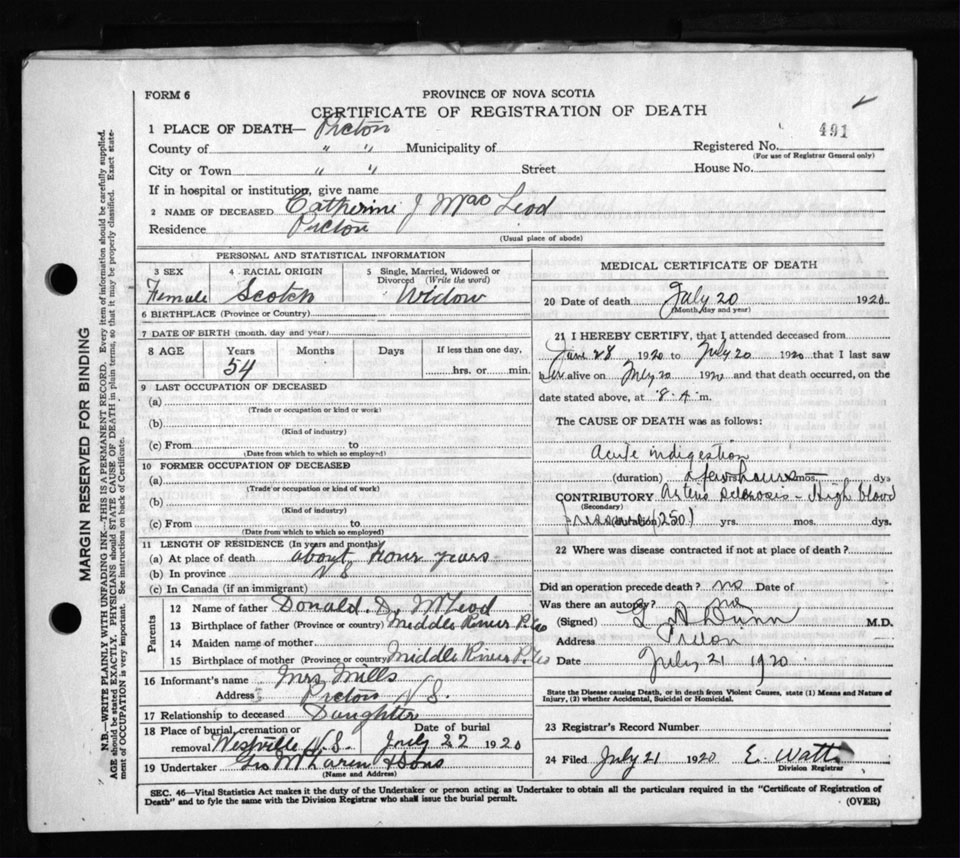 FORM 6
PROVINCE OF NOVA SCOTIA
CERTIFICATE OF REGISTRATION OF DEATH
1 PLACE OF DEATH— Pictou
491
County of " " Municipality of Registered No.
(For use of Registrar General only)
City or Town " " Street House No.
If in hospital or institution, give name
2 NAME OF DECEASED Catherine J MacLeod
Residence Pictou
(Usual place of abode)
PERSONAL AND STATISTICAL INFORMATION
3 SEX 4 RACIAL ORIGIN 5 Single, Married, Widowed or Divorced (Write the word)
Female Scotch Widow
6 BIRTHPLACE (Province or Country)
7 DATE OF BIRTH (month, day and year)
8 AGE Years Months Days If less than one day,
54 hrs. or min.
9 LAST OCCUPATION OF DECEASED
(a)
(Trade or occupation or kind or work)
(b)
(Kind of industry)
(c) From to
(Date from which to which so employed)
10 FORMER OCCUPATION OF DECEASED
(a)
(Trade or occupation or kind of work)
(b)
(Kind of industry)
(c) From to
(Date from which to which so employed)
11 LENGTH OF RESIDENCE (In years and months)
(a) At place of death about four years
(b) In province N S
(c) In Canada (if an immigrant)
Parents
12 Name of father Donald. D. McLeod
13 Birthplace of father (Province or country) Middle River P. Co
14 Maiden name of mother
15 Birthplace of mother (Province or country) Middle River P. Co
16 Informant's name Mrs Mills
Address Pictou N S.
17 Relationship to deceased Daughter
18 Place of burial, cremation or removal Westville N. S. Date of burial July 22 1920
19 Undertaker Geo McLaren & Sons
(Name and Address)
MEDICAL CERTIFICATE OF DEATH
20 Date of death July 20 1920
(Month, day and year)
21 I HEREBY CERTIFY, that I attended deceased from
June 28 1920 to July 20 1920 that I last saw
her alive on July 20 1920 and that death occurred, on the
date stated above, at 8. A. m.
The CAUSE OF DEATH was as follows:
Acute indigestion
(duration) a few hours mos. dys
CONTRIBUTORY Arterio sclerosis - High blood
(Secondary)
pressure (250) (duration) yrs. mos. dys.
22 Where was disease contracted if not at place of death?
Did an operation precede death? no Date of
Was there an autopsy? no
(Signed) Dunn M.D.
Address Pictou
Date July 21 1920
State the Disease causing Death, or in death from Violent Causes, state (1) Means and Nature of
Injury, (2) whether Accidental, Suicidal or Homicidal.
23 Registrar's Record Number
24 Filed July 21 1920 E. Watt
Division Registrar
SEC. 46—Vital Statistics Act makes it the duty of the Undertaker or person acting as Undertaker to obtain all the particulars required in the "Certificate of Registration of
Death" and to fyle the same with the Division Registrar who shall issue the burial permit. (OVER)
MARGIN RESERVED FOR BINDING
N.B.—WRITE PLAINLY WITH UNFADING INK—THIS IS A PERMANENT RECORD. Every item of information should be carefully supplied.
AGE should be stated EXACTLY. PHYSICIANS should STATE CAUSE OF DEATH in plain terms, so that it may be properly classified. Exact state-
ment of OCCUPATION is very important. See instructions on back of Certificate.